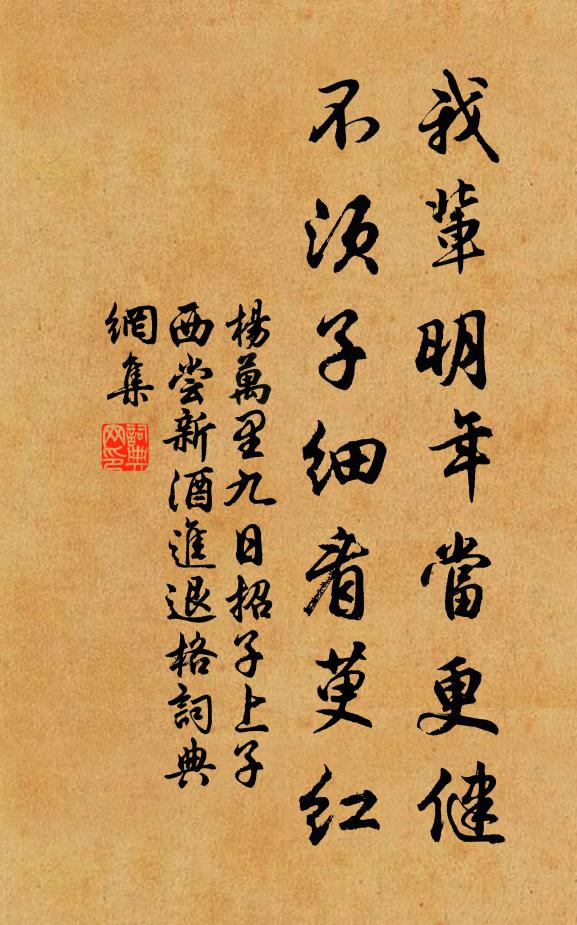 我輩明年當更健
不須子細看萸红
楊萬里九日招子上子
西嘗新酒進退格詞典
網集
詞典
网印